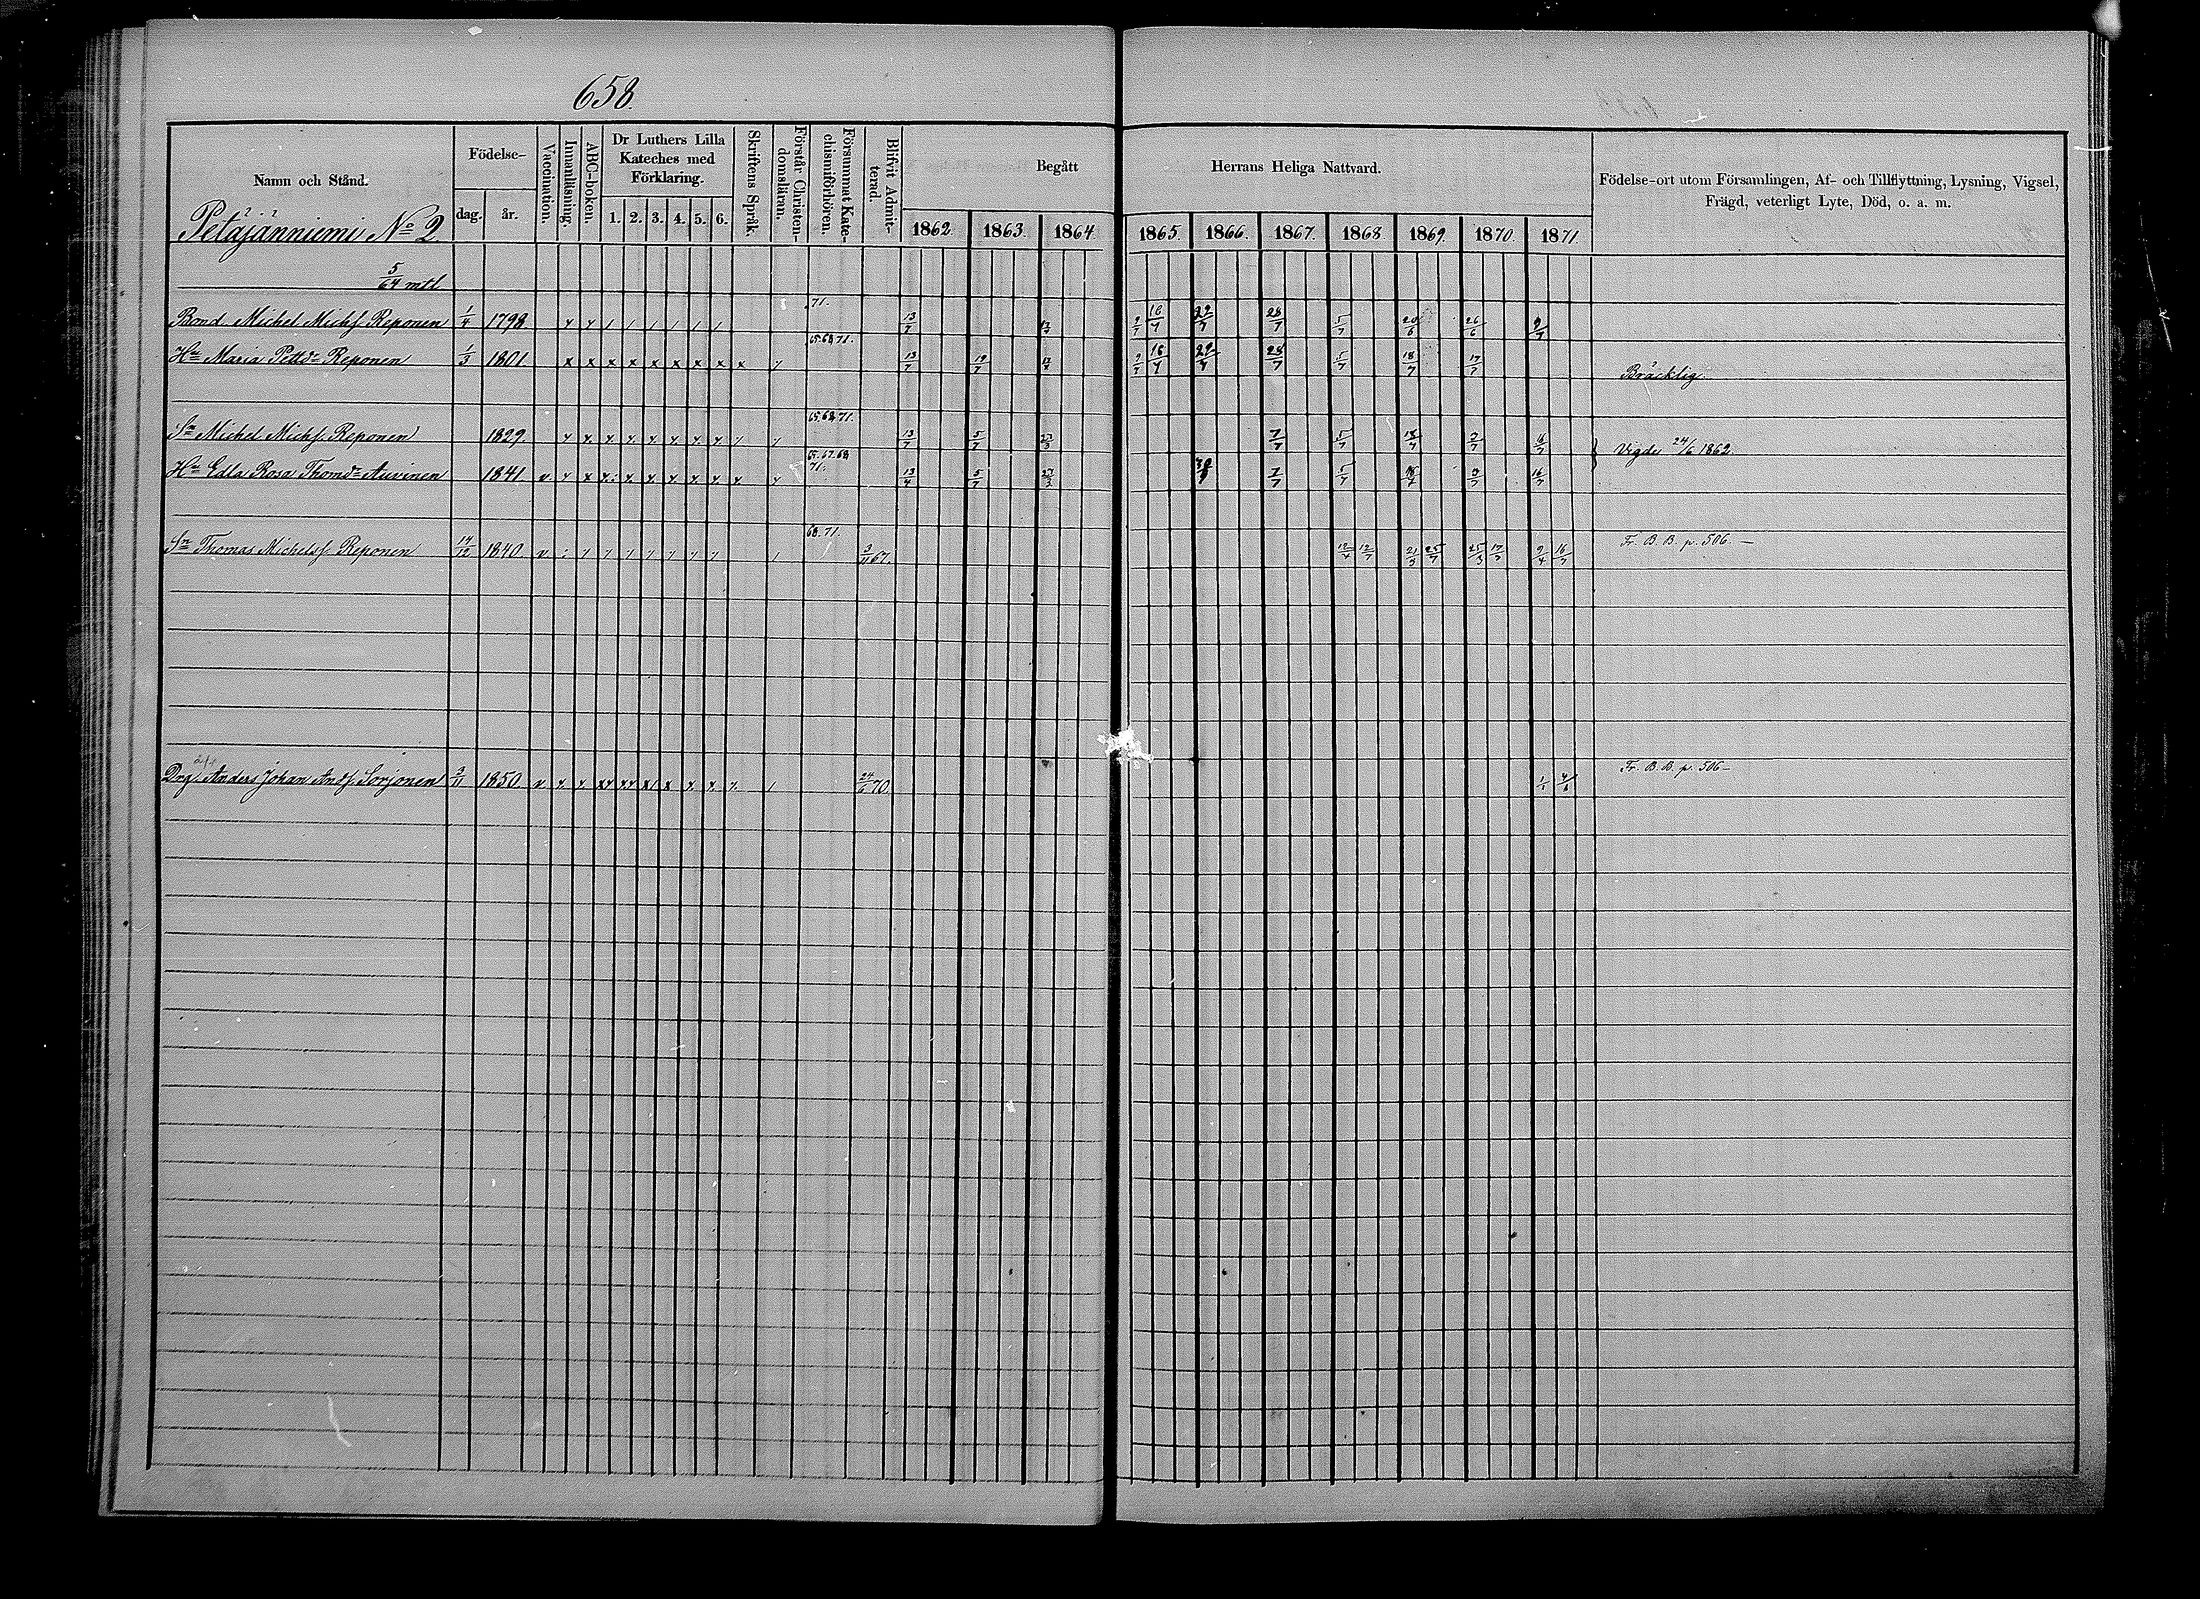 658.
Namn och Stånd.
Födelse-
dag.
år.
Vaccination.
Innanläsning.
ABC-boken.
Dr Luthers Lilla
Kateches med
Förklaring.
1. 2. 3. 4. 5. 6.
Skriftens Språk.
Förstår Christen-
domsläran.
Försummat Kate-
chismiförhören.
Blifvit Admit-
terad.
Begått Herrans Heliga Nattvard.
1862. 1863. 1864. 1865. 1866. 1867. 1868. 1869. 1870. 1871.
Födelse-ort utom Församlingen, Af- och Tillflyttning, Lysning, Vigsel,
Frägd, veterligt Lyte, Död, o. a. m.
Petäjänniemi No 2.
5/64 mtl
Bond Michel Michs. Reponen 1/4 1798 71. 13/7 22/7 28/7 5/7 26/6
Hu Maria Pettsdr Reponen 1/3 1801. 65.68.71. 13/7 19/7 22/7 28/7 5/7 18/7 17/7 Bräcklig.
Sn Michel Michs. Reponen 1829. 65.68.71. 13/7 5/7 7/7 5/7 18/7 Vigde 24/6 1862.
Hu Edla Rosa Thomsdr Auvinen 1841. v 65.67.68 71. 5/7 7/7 5/7 16/7
Sn Thomas Michelss. Reponen 14/12 1840. v 68.71. 67. 12/4 12/7 25/7 25/3 17/7 9/4 16/7 Fr. B. B. p. 506. —
Drg. Anders Johan Ands. Sorjonen 1850. v 24/6 70 Fr. B. B. p. 506 —